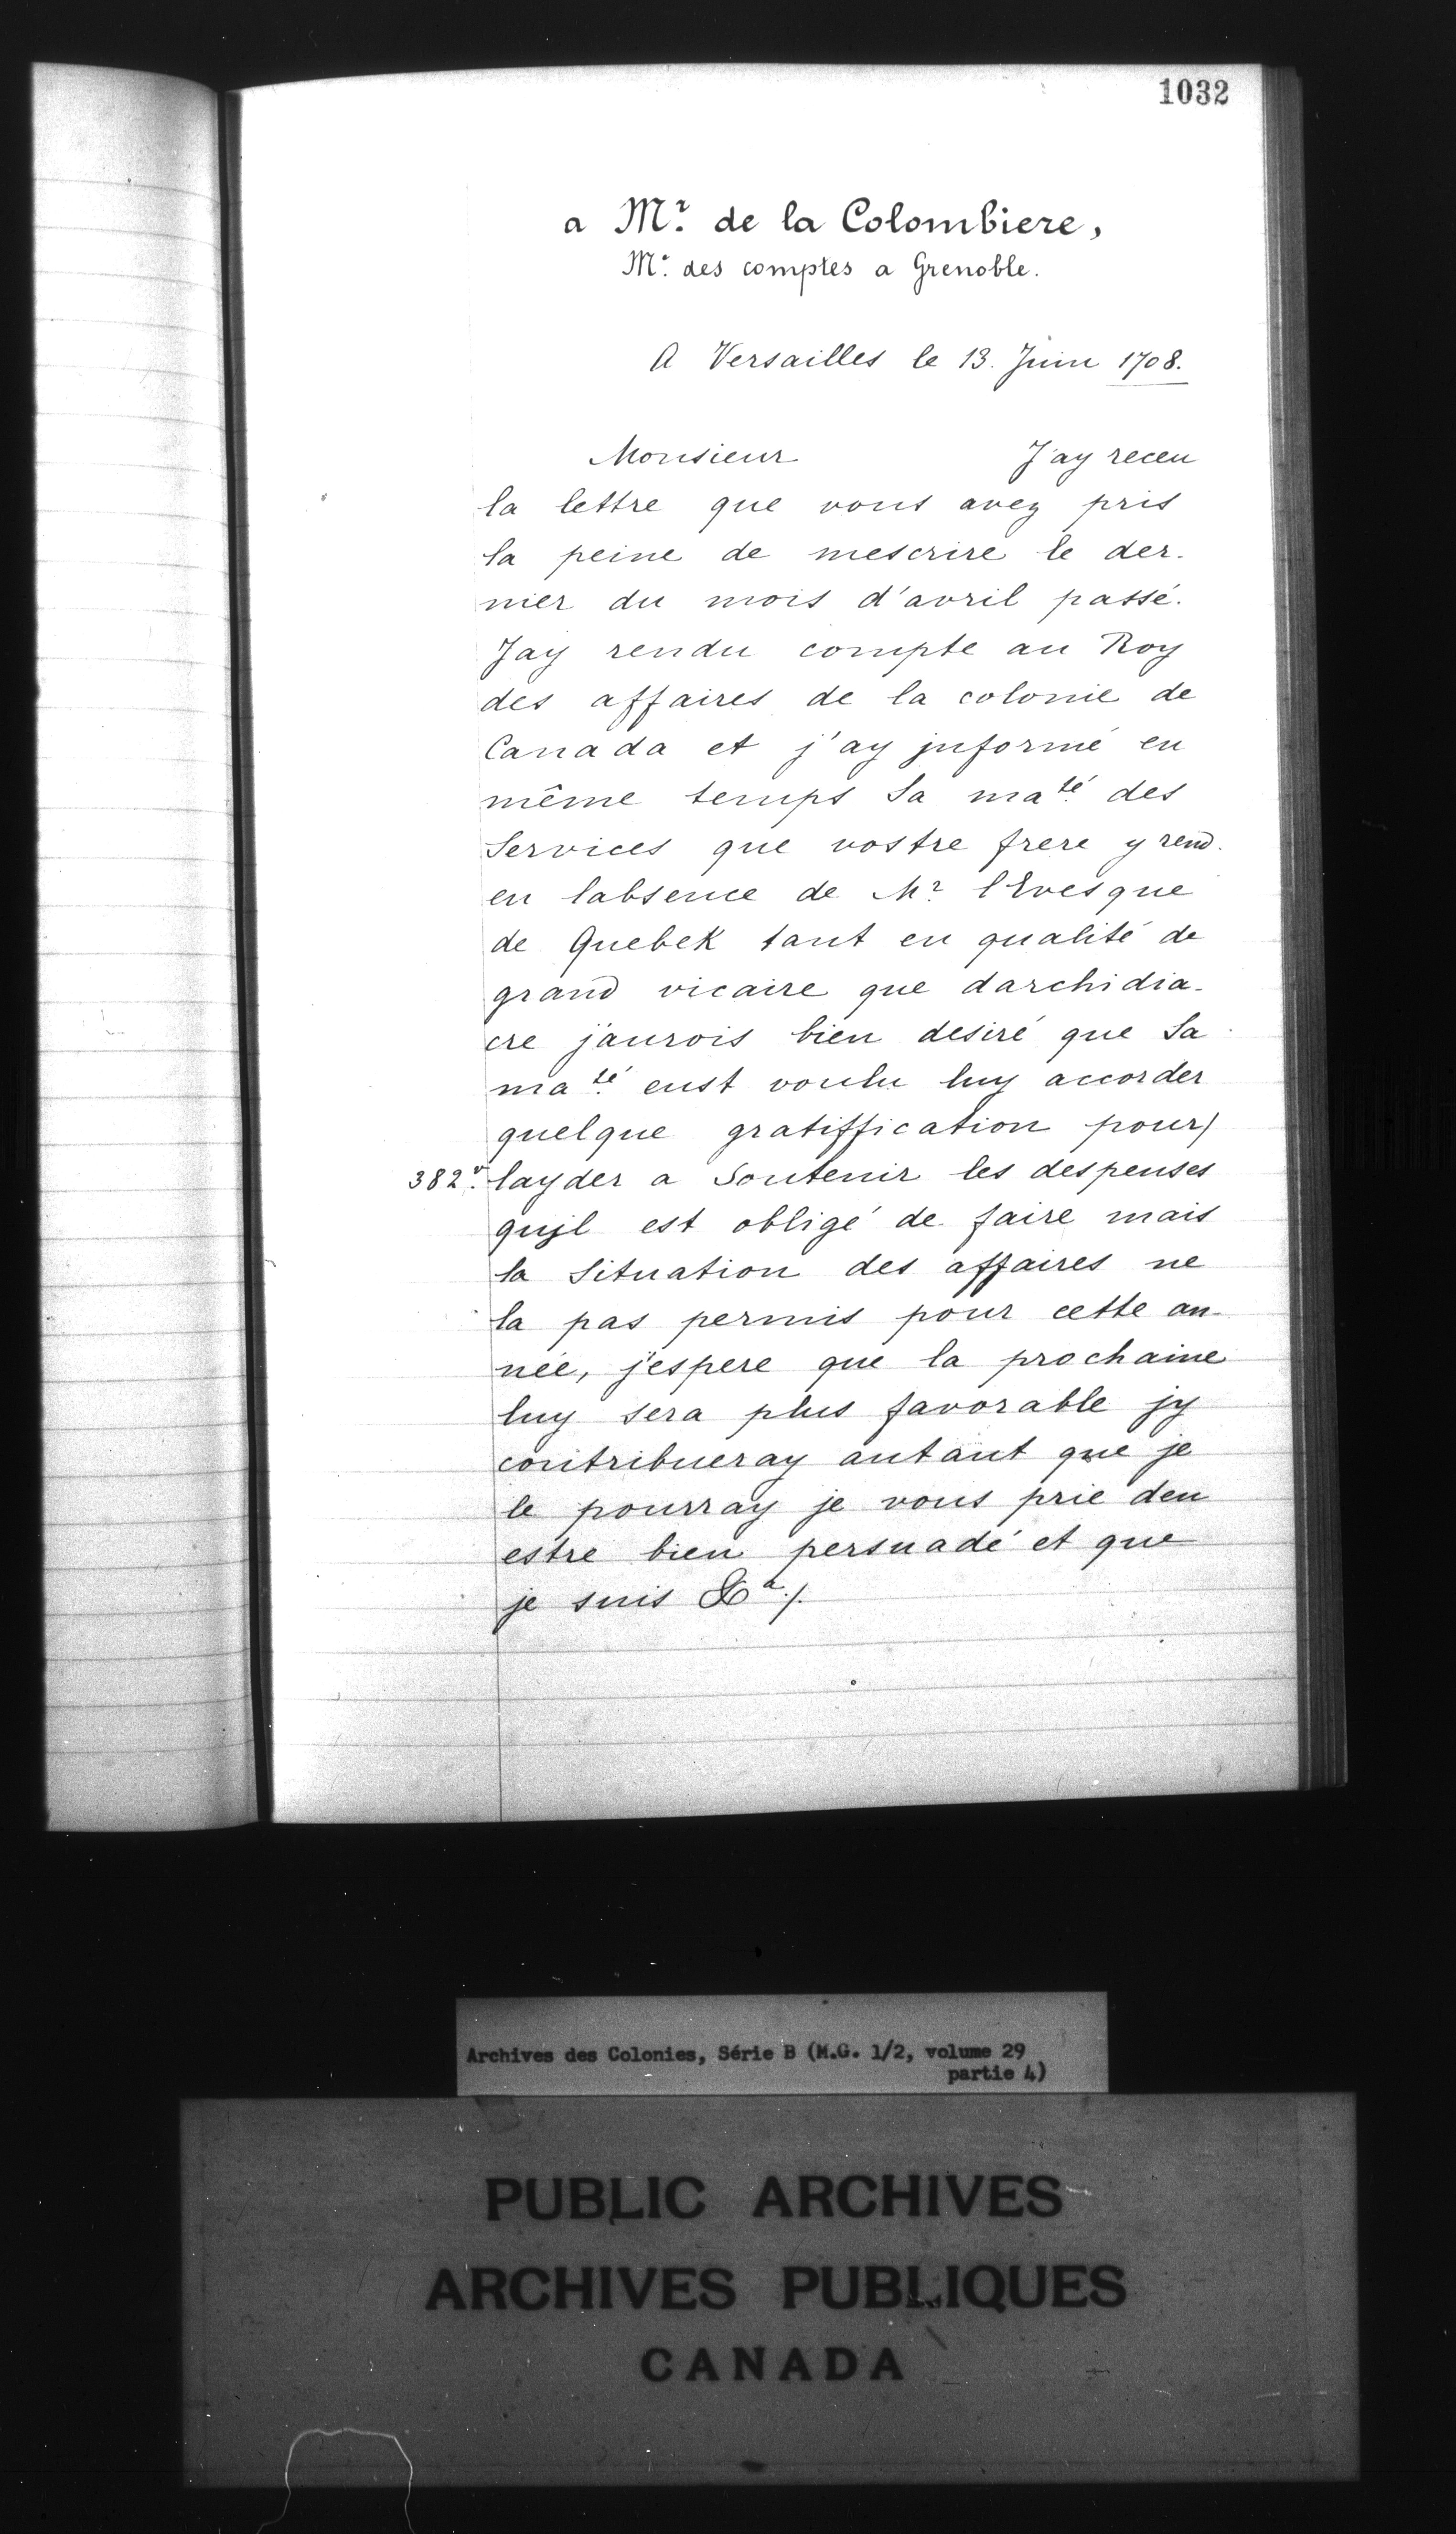 1032
a Mr. de la Colombiere,
Me. des comptes a Grenoble.
A Versailles le 13. Juin 1708.
Monsieur J'ay receu
la lettre que vous avez pris
la peine de mescrire le der-
nier du mois d'avril passé.
Jay rendu compte au Roy
des affaires de la colonie de
Canada et j'ay jnformé en
même temps Sa maté. des
Services que vostre frere y rend.
en labsence de Mr. lEvesque
de Quebek tant en qualité de
grand vicaire que darchidia-
cre j'aurois bien desiré que Sa
maté. eust voulu luy accorder
quelque gratiffication pour/
382v. layder a Soutenir les despenses
qujl est obligé de faire mais
la Situation des affaires ne
la pas permis pour cette an-
née, j'espere que la prochaine
luy sera plus favorable jy
contribueray autant que je
le pourray je vous prie den
estre bien persuadé et que
je suis &a./.
Archives des Colonies, Série B (M.G. 1/2, volume 29
partie 4)
PUBLIC ARCHIVES
ARCHIVES PUBLIQUES
CANADA